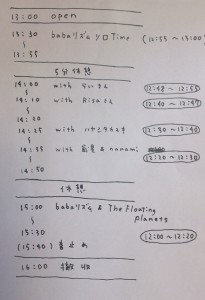 13:00 open
13:30 babaリズム ソロTime (12:55~13:00)
~
13:55
5分休憩
14:00 with Vivさん 12:48~12:55
~
14:10 with Rizaさん 12:40~12:47
~
14:20
14:25 with ハヤシタカユキ 12:30~12:40
~
14:35 with & nanami 12:20~12:30
~
14:50
休憩
15:00 babaリズム & The Floating
planets
~
15:30 12:00~12:20
(15:40)
16:00 撤収